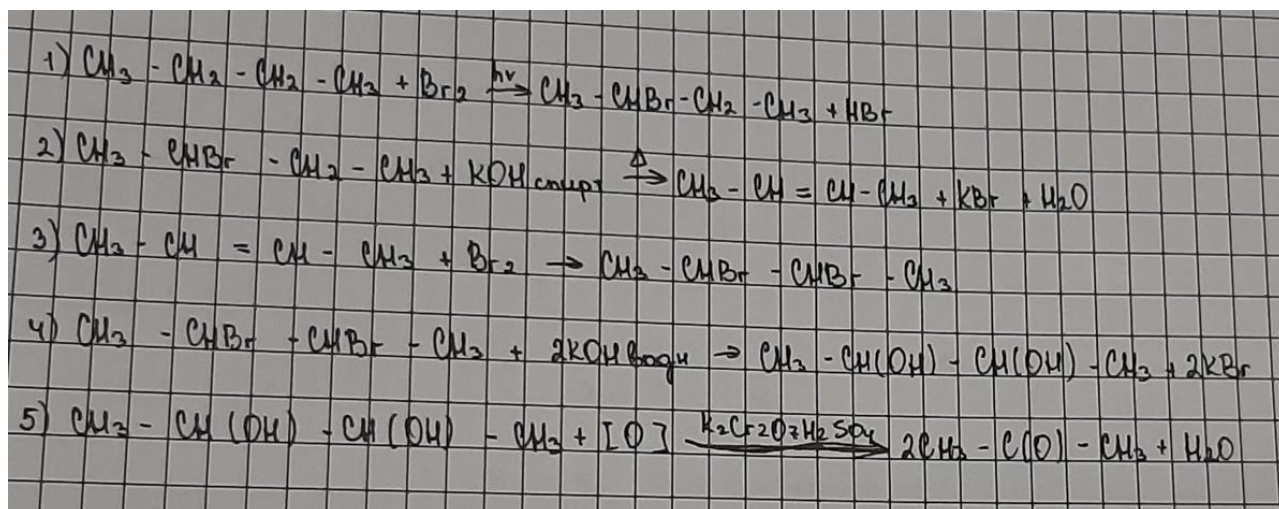 1) CH3 - CH2 - CH2 - CH3 + Br2 hν→ CH3 - CHBr - CH2 - CH3 + HBr
2) CH3 - CHBr - CH2 - CH3 + KOH спирт Δ→ CH3 - CH = CH - CH3 + KBr + H2O
3) CH3 - CH = CH - CH3 + Br2 → CH3 - CHBr - CHBr - CH3
4) CH3 - CHBr - CHBr - CH3 + 2KOH водн → CH3 - CH(OH) - CH(OH) - CH3 + 2KBr
5) CH3 - CH(OH) - CH(OH) - CH3 + [O] K2Cr2O7H2SO4→ 2CH3 - C(O) - CH3 + H2O